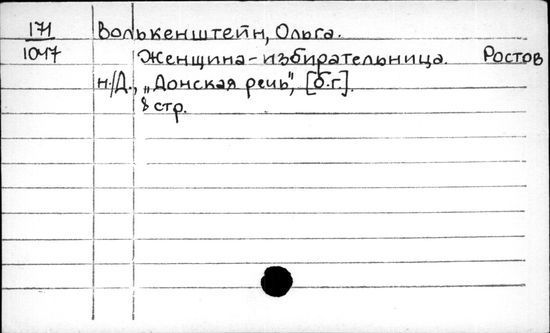 171 Волькенштейн, Ольга.
1047 Женщина-избирательница. Ростов
н/Д., „Донская речь", [б.г.].
8 стр.